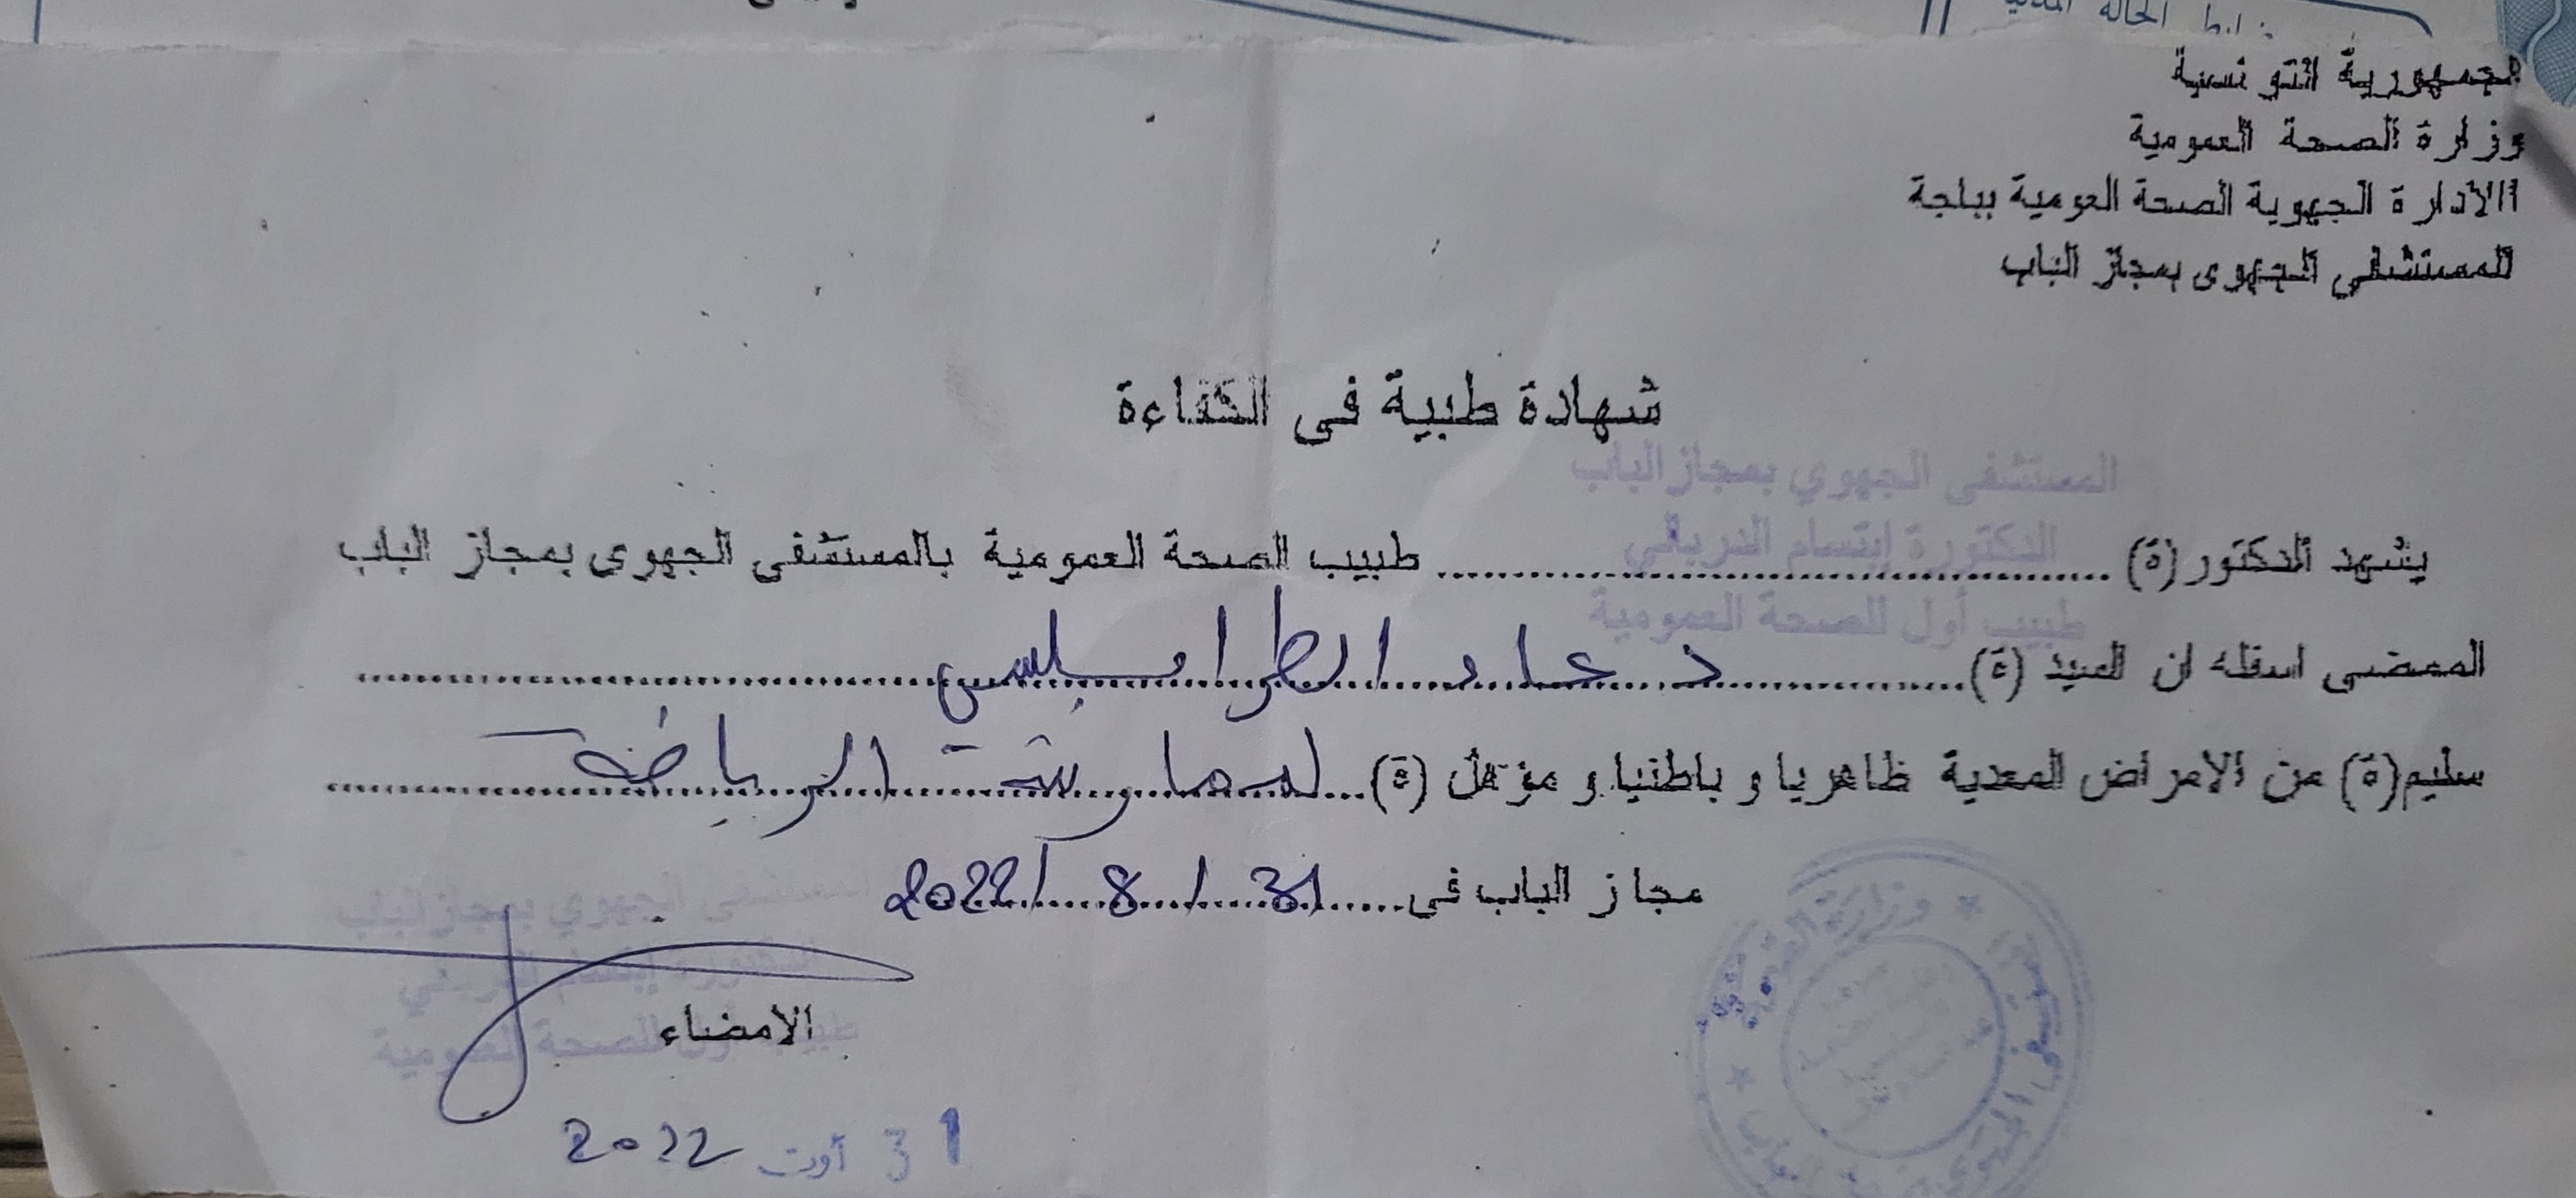 ضابط الحالة المدنية
الجمهورية التونسية
وزارة الصحة العمومية
الادارة الجهوية الصحة العومية بباجة
المستشفى الجهوى بمجاز الباب
شهادة طبية فى الكفاءة
المستشفى الجهوي بمجاز الباب
الدكتورة إبتسام الغرياني
طبيب أول للصحة العمومية
يشهد الدكتور (ة) ........ طبيب الصحة العمومية بالمستشفى الجهوى بمجاز الباب
الممضى اسفله ان السيد (ة) ........ دعاء الطرابلسي ........
سليم(ة) من الامراض المعدية ظاهريا و باطنيا و مؤهل (ة) ... لممارسة الرياضة
مجاز الباب فى ...... 31 / 8 / 2022
المستشفى الجهوي بمجاز الباب
طبيب أول للصحة العمومية
الامضاء
31 أوت 2022
وزارة الصحة